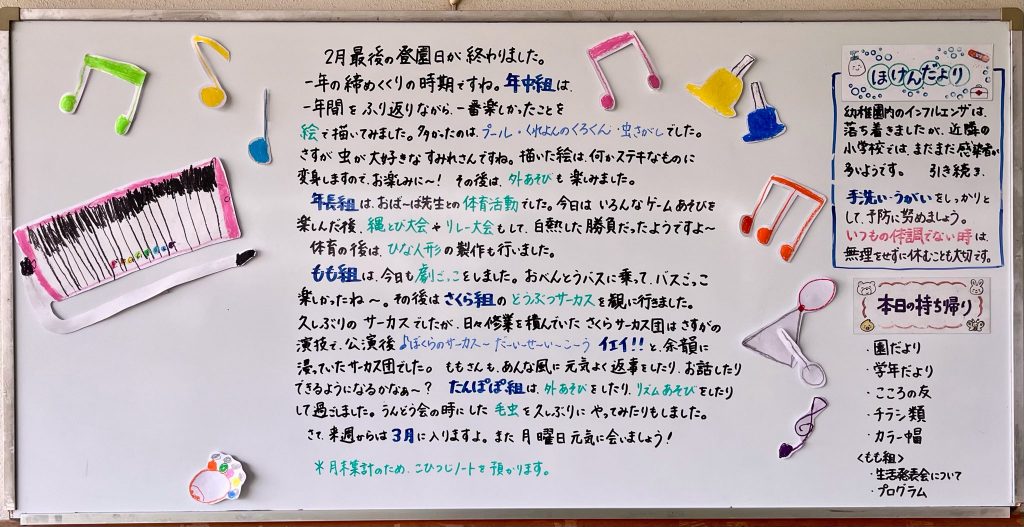 2月最後の登園日が終わりました。
一年の締めくくりの時期ですね。年中組は、
一年間をふり返りながら、一番楽しかったことを
絵で描いてみました。多かったのは、プール・くれよんのくろくん・虫さがしでした。
さすが虫が大好きなすみれさんですね。描いた絵は、何かステキなものに
変身しますので、お楽しみに〜！その後は、外あそびも楽しみました。
年長組は、おばーば先生との体育活動でした。今日はいろんなゲームあそびを
楽しんだ後、縄とび大会やリレー大会もして、白熱した勝負だったようですよ〜
体育の後は、ひな人形の製作も行いました。
もも組は、今日も劇ごっこをしました。おべんとうバスに乗って、バスごっこ
楽しかったね〜。その後はさくら組のどうぶつサーカスを観に行きました。
久しぶりのサーカスでしたが、日々修業を積んでいたさくらサーカス団はさすがの
演技で、公演後♪ぼくらのサーカス〜だーいせーいこーうイエイ!!と、余韻に
浸っていたサーカス団でした。ももさんも、あんな風に元気よく返事をしたり、お話したり
できるようになるかなぁ〜？たんぽぽ組は、外あそびをしたり、リズムあそびをしたり
して過ごしました。うんどう会の時にした毛虫を久しぶりにやってみたりもしました。
さて、来週からは3月に入りますよ。また月曜日元気に会いましょう！
＊月末集計のため、こひつじノートを預かります。
ほけんだより
幼稚園内のインフルエンザは、
落ち着きましたが、近隣の
小学校では、まだまだ感染者が
多いようです。引き続き、
手洗い・うがいをしっかりと
して、予防に努めましょう。
いつもの体調でない時は、
無理をせずに休むことも大切です。
本日の持ち帰り
・園だより
・学年だより
・こころの友
・チラシ類
・カラー帽
〈もも組〉
・生活発表会について
・プログラム